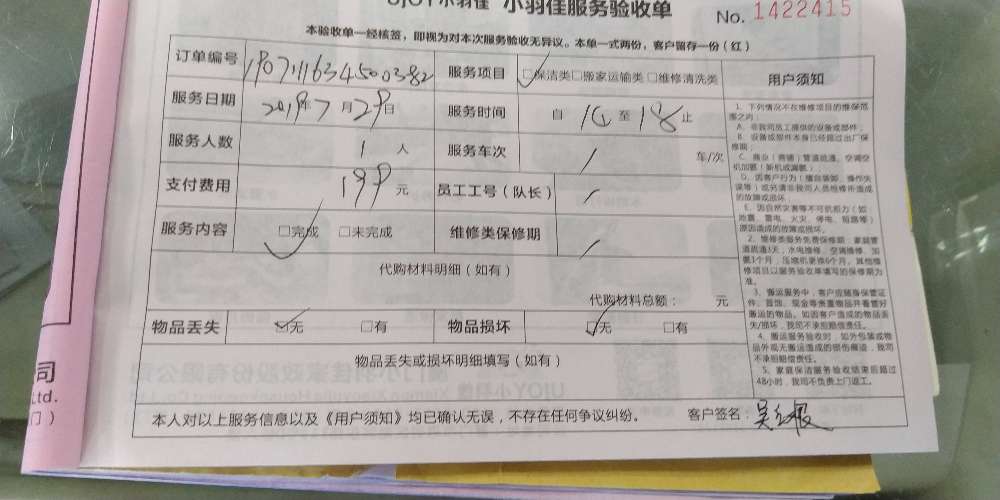 UJOY小羽佳 小羽佳服务验收单 No. 1422415
本验收单一经核签，即视为对本次服务验收无异议。本单一式两份，客户留存一份（红）
订单编号 服务项目 □保洁类□搬家运输类□维修清洗类 用户须知
服务日期 2019年7月29日 服务时间 自 至 18 止
服务人数 1 人 服务车次 / 车/次
支付费用 199 元 员工工号（队长） /
服务内容 □完成 □未完成 维修类保修期 /
代购材料明细（如有）
代购材料总额： 元
物品丢失 □无 □有 物品损坏 □无 □有
物品丢失或损坏明细填写（如有）
本人对以上服务信息以及《用户须知》均已确认无误，不存在任何争议纠纷。 客户签名：
1、下列情况不在维修项目的维保范
围之内：
A、非我司员工提供的设备或部件；
B、设备或部件本身已经超过出厂保
修期；
C、商业（商铺）管道疏通、空调空
机加氨（新机或漏氨）；
D、因客户行为（擅自装卸、操作失
误等）或另请非我司人员维修所造成
的故障或损坏；
E、因自然灾害等不可抗拒力（如：
地震、雷电、火灾、停电、短路等）
原因造成的故障或损坏。
2、维修类服务免费保修期：家庭管
道疏通3天，水电维修、空调维修、加
氨1个月，压缩机更换6个月。其他维
修项目以服务验收单填写的保修期为
准。
3、搬运服务中，客户应随身保管证
件、首饰、现金等贵重物品并看管好
搬运的物品。如因客户造成的物品丢
失/损坏，我司不承担赔偿责任。
4、搬运服务验收时，如外包装或物
品外观无搬运造成的损伤痕迹，我司
不承担赔偿责任。
5、家庭保洁服务验收结束后超过
48小时，我司不负责上门返工。
司
Ltd.
门）